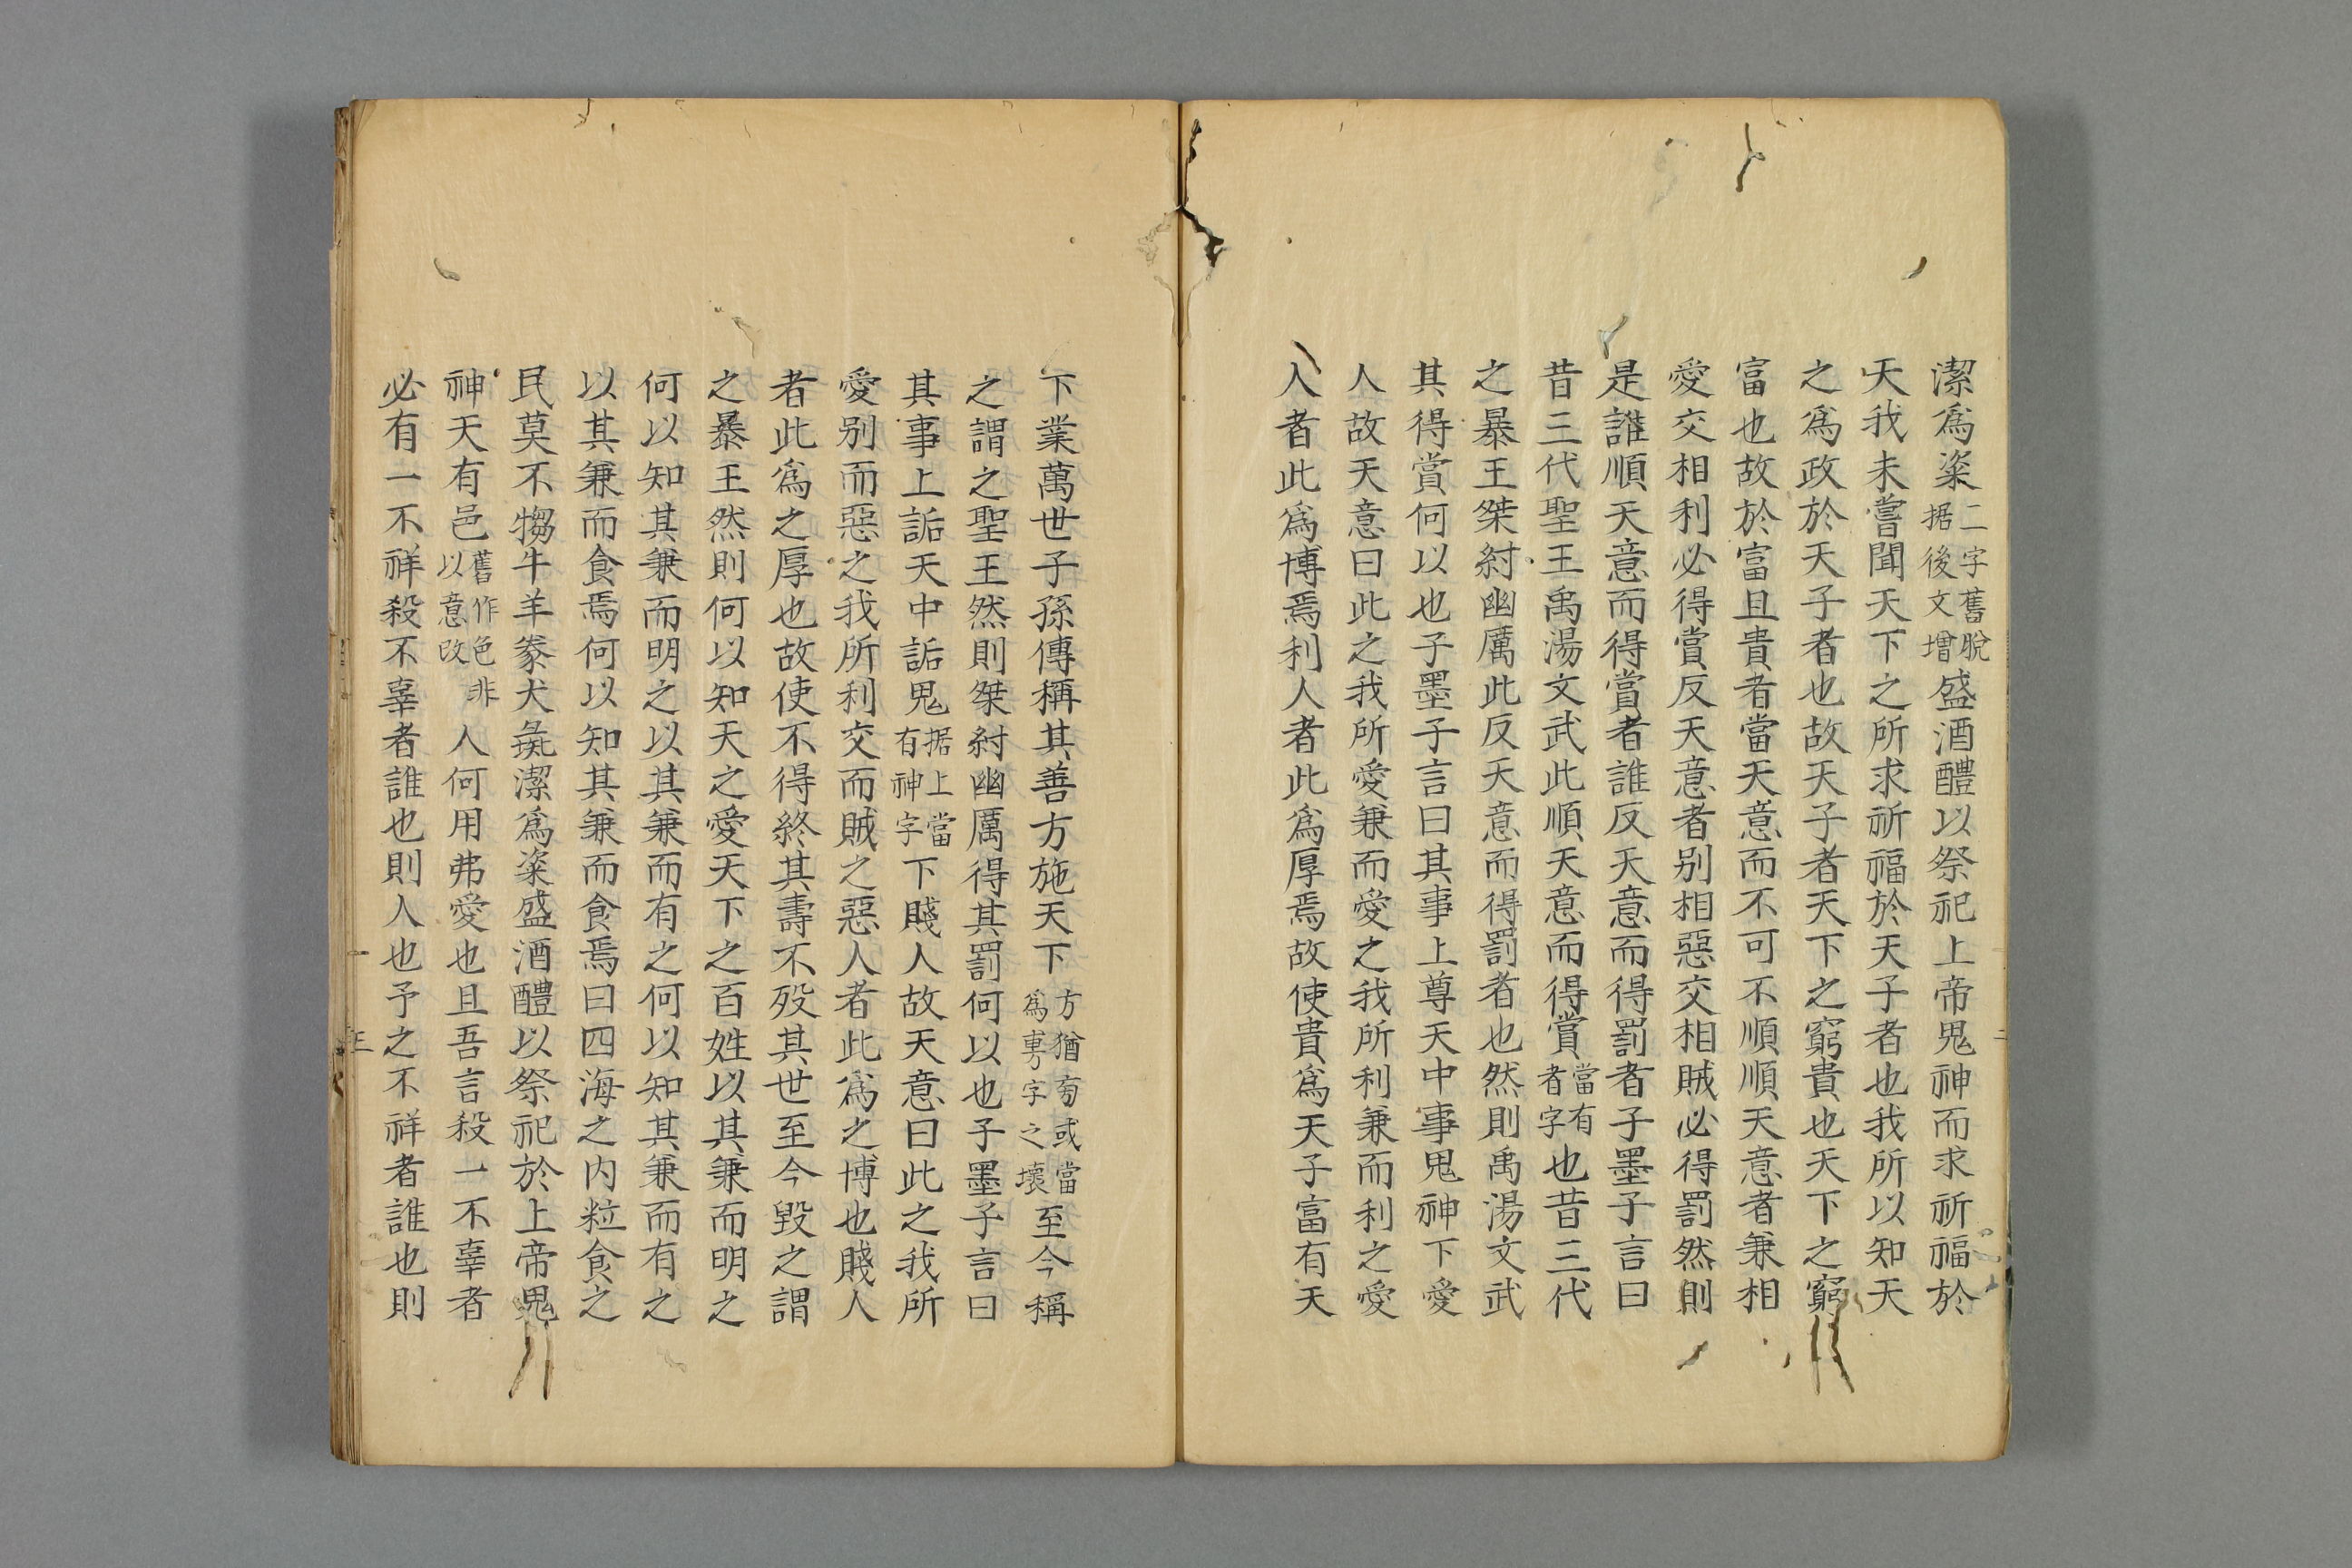 潔爲粢二字舊脫据後文增盛酒醴以祭祀上帝鬼神而求祈福於
天我未嘗聞天下之所求祈福於天子者也我所以知天
之爲政於天子者也故天子者天下之窮貴也天下之窮
富也故於富且貴者當天意而不可不順順天意者兼相
愛交相利必得賞反天意者别相惡交相賊必得罰然則
是誰順天意而得賞者誰反天意而得罰者子墨子言曰
昔三代聖王禹湯文武此順天意而得賞當有者字也昔三代
之暴王桀紂幽厲此反天意而得罰者也然則禹湯文武
其得賞何以也子墨子言曰其事上尊天中事鬼神下愛
人故天意曰此之我所愛兼而愛之我所利兼而利之愛
人者此爲博焉利人者此爲厚焉故使貴爲天子富有天
下業萬世子孫傳稱其善方施天下方猶旁或當爲旉字之壞至今稱
之謂之聖王然則桀紂幽厲得其罰何以也子墨子言曰
其事上詬天中詬鬼据上當有神字下賤人故天意曰此之我所
愛别而惡之我所利交而賊之惡人者此爲之博也賤人
者此爲之厚也故使不得終其壽不歿其世至今毀之謂
之暴王然則何以知天之愛天下之百姓以其兼而明之
何以知其兼而明之以其兼而有之何以知其兼而有之
以其兼而食焉何以知其兼而食焉曰四海之内粒食之
民莫不犓牛羊豢犬彘潔爲粢盛酒醴以祭祀於上帝鬼
神天有邑舊作色非以意改人何用弗愛也且吾言殺一不辜者
必有一不祥殺不辜者誰也則人也予之不祥者誰也則
三